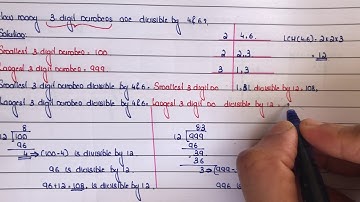 How many 3 digit numbers are divisible by 4&6?
Solution: 2 4,6. LCM(4,6)=2x2x3
Smallest 3 digit number = 100 2 2,3 = 12
Largest 3 digit number = 999. 3 1,3
Smallest 3 digit number divisible by 4&6 = Smallest 3 digit no 1,1 divisible by 12 = 108,
Largest 3 digit number divisible by 4&6 = Largest 3 digit no divisible by 12
8 83
12 100 12 999
96 96
4 → (100-4) is divisible by 12 39
36
96 is divisible by 12. 3 → (999-
96+12 = 108. is divisible by 12 996 is